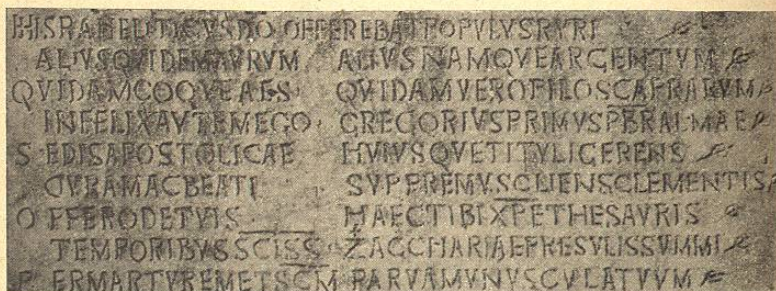 HISRAHELITICVSDO OFFEREBATPOPVLVSRVRI
ALIVSQVIDEMAVRVM ALIVSNAMQVEARGENTVM
QVIDAMCOQVEAES QVIDAMVEROPILOSCAPRARVM
INFELIXAVTEMEGO GREGORIVSPRIMVSPBRALMAE
SEDISAPOSTOLICAE HVIVSQVETITVLIGERENS
CVRAMACBEATI SVPPREMVSCLIENSCLEMENTIS
OFFERODETVIS HAECTIBIXPETHESAVRIS
TEMPORIBVSSCISS ZACCHARIAEPRESVLISSVMMI
PERMARTYREMETSCM PARVAMVNVSCVLATVVM